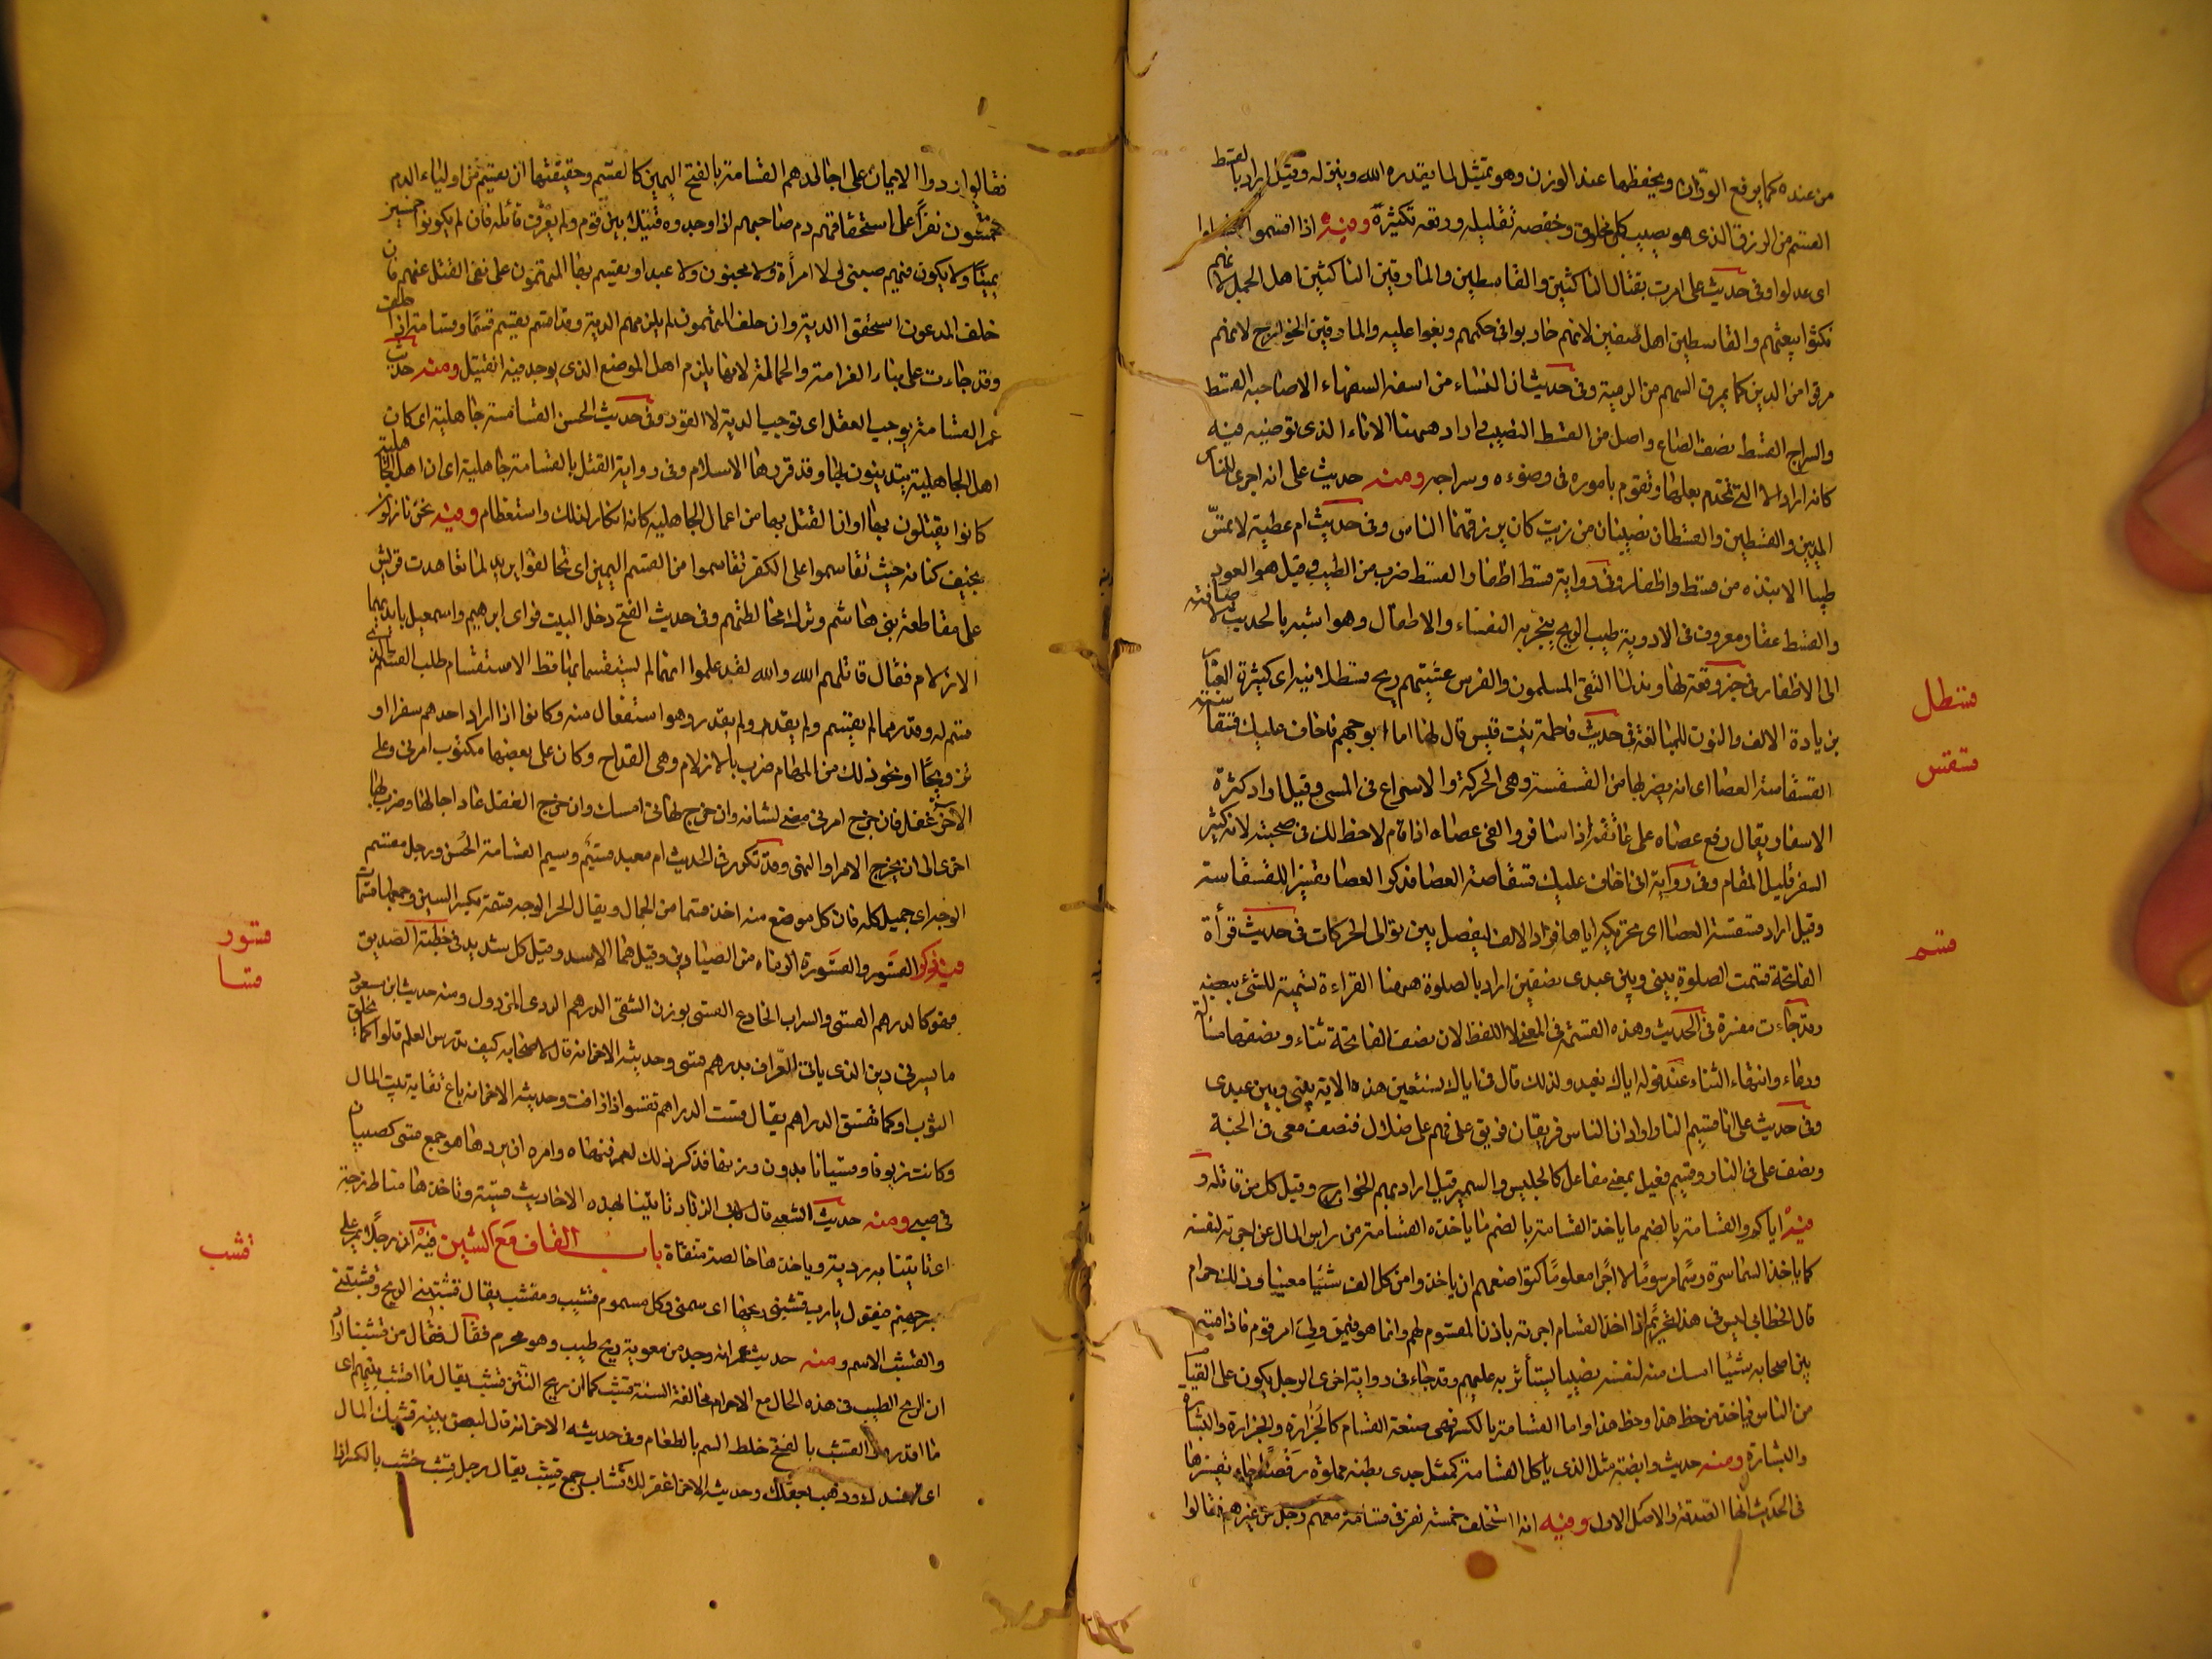 من عنده كما يرفع الوزان ويخفظها عند الوزن وهو تمثيل لما يقدره الله وينزله وقيل اراد بالقسط
القسم من الرزق الذى هو يصيب كل مخلوق وخفضه تقليله ورفعه تكثيره ومنه اذا قسموا اقسطوا
اى عدلوا وفى حديث على امرت بقتال الناكثين والقاسطين والمارقين الناكثين اهل الجمل لانهم
نكثوا بيعتهم والقاسطين اهل صفين لانهم جاروا فى حكمهم وبغوا عليه والمارقين الخوارج لانهم
مرقوا من الدين كما يمرق السهم من الرمية وفى حديث ان النساء من اسفه السفهاء الا صاحبة القسط
والسراج القسط نصف الصاع واصل من القسط النصيب واراد ههنا الاناء الذى توضئه فيه
كانه اراد الا التى تخدم بعلها وتقوم باموره فى وضوءه وسراجه ومنه حديث على انه اجرى للناس
المديين والقسطين والقسطان نصيبان من زيت كان يرزقهما الناس وفى حديث ام عطية لا تمس
طيبا الا نبذه من قسط واظفار وفى رواية قسط اظفار القسط ضرب من الطيب وقيل هو العود
والقسط عقار معروف فى الادوية طيب الريح يبخر به النفساء والاطفال وهو اشبه بالحديث لاضافته
الى الاظفار فى خبر وقعة نهاوند لما التقى المسلمون والفرس غشيتهم ريح قسطلانية اى كثيرة الغبار
بزيادة الالف والنون للمبالغة فى حديث فاطمة بنت قيس قال لها اما ابو جهم فاخاف عليك قسقاسته
القسقاسة العصا اى انه يضربها من القسقسة وهى الحركة والاسراع فى المشى وقيل اراد كثرة
الاسفار يقال رفع عصاه على عاتقه اذا سافر والقى عصاه اذا اقام لا حظ لك فى صحبته لانه كثير
السفر قليل المقام وفى رواية انى اخاف عليك قسقاسته العصا فذكر العصا تفسيرا للقسقاسة
وقيل اراد قسقسة العصا اى تحريكه اياها فزاد الالف ليفصل بين توالى الحركات فى حديث قرأة
الفاتحة قسمت الصلوة بينى وبين عبدى نصفين اراد بالصلوة ههنا القراءة تسمية للشئ ببعضه
وقد جاءت مفسرة فى الحديث وهذه القسمة فى المعنى لا اللفظ لان نصف الفاتحة ثناء ونصفها مسألة
ودعاء وانتهاء الثناء عند قوله اياك نعبد ولذلك قال فى اياك نستعين هذه الاية بينى وبين عبدى
وفى حديث على انا قسيم النار اراد ان الناس فريقان فريق على فهم على ضلال فنصف معى فى الجنة
ونصف على فى النار وقسيم فعيل بمعنى مفاعل كالجليس والسمير قيل اراد بهم الخوارج وقيل كل من قاتله و
فيه اياكم والقسامة بالضم ما ياخذه القسامة بالضم ما ياخذه القسامة من راس المال عن اجرته لنفسه
كما ياخذ السماسرة رسما مرسوما لا اجرا معلوما كتواضعهم ان ياخذوا من كل الف شيئا معينا وذلك حرام
قال الخطابى ليس فى هذا تحريم اذا اخذ القسام اجرته باذن المقسوم لهم وانما هو فيمن ولى امر قوم فاذا قسم
بين اصحابه شيئا امسك منه لنفسه نصيبا يستأثر به عليهم وقد جاء فى رواية اخرى الرجل يكون على الفيام
من الناس فياخذ من حظ هذا وحظ هذا واما القسامة بالكسر فهى صنعة القسام كالجزارة والجزارة والبشارة
والبشارة ومنه حديث وابصة مثل الذى ياكل القسامة كمثل جدى بطنه مملوة رضفا جاء تفسيرها
فى الحديث انها الصدقة والاصل الاول وفيه انه استحلف خمسة نفر فى قسامة معهم رجل من غيرهم فقالوا
قسطل
قسقس
قسم
فقالوا ردوا الايمان على اجالدهم القسامة بالفتح اليمين كالقسم وحقيقتها ان يقسم من اولياء الدم
خمسون نفرا على استحقاقهم دم صاحبهم اذا وجدوه قتيلا بين قوم ولم يعرف قاتله فان لم يكونوا خمسين
يمينا ولا يكون فيهم صبى ولا امرأة ولا مجنون ولا عبد او يقسم بها المتهمون على نفى القتل عنهم فان
حلف المدعون استحقوا الدية وان حلف المتهمون لم يلزمهم الدية وقد اقسم يقسم قسما وقسامة اذا حلف
وقد جاءت على بناء الغرامة والحمالة لانها يلزم اهل الموضع الذى يوجد فيه القتيل ومنه حديث
عمر القسامة يوجب العقل اى توجب الدية لا القود وفى حديث الحسن القسامة جاهلية اى كان
اهل الجاهلية يتدينون بها وقد قررها الاسلام وفى رواية القتل بالقسامة جاهلية اى ان اهل الجاهلية
كانوا يقتلون بها او ان القتل بها من اعمال الجاهلية كانه انكار لذلك واستعظام وفيه نحن نازلون
بخيف كنانه حيث تقاسموا على الكفر تقاسموا من القسم اليمين اى تحالفوا يريد لما تعاهدت قريش
على مقاطعة بنى هاشم وترك مخالطتهم وفى حديث الفتح دخل البيت فراى ابرهيم واسمعيل بايديهما
الازلام فقال قاتلهم الله والله لقد علموا انهما لم يستقسما بها قط الاستقسام طلب القسم الذى
قسم له وقدر مما لم يقسم ولم يقدر وهو استفعال منه وكانوا اذا اراد احدهم سفرا او
تزويجا او نحو ذلك من المهام ضرب بالازلام وهى القداح وكان على بعضها مكتوب امرنى وعلى
الآخر غفل فان خرج امرنى مضى لشانه وان خرج نهانى امسك وان خرج الغفل عاد اجالها وضرب بها
اخرى الى ان يخرج الامر او النهى وقد تكرر فى الحديث ام معبد قسيم وسيم القسامة الحسن ورجل مقسم
الوجه اى جميل كله فان كل موضع منه اخذ قسما من الجمال ويقال لحر الوجه قسمة بكسر السين وجمعها قسمات
فيه ذكر القسور والقسورة الرماه من الصيادين وقيل هما الاسد وقيل كل شديد فى خطبة الصديق
فهو كالدرهم القسى والسراب الخادع القسى بوزن الشقى الدرهم الردى المرذول ومنه حديث ابن مسعود
ما يسرنى دين الذى ياتى العراف بدرهم قسى وحديثه الاخر انه قال لاصحابه كيف يدرس العلم قالوا كما يخلق
الثوب او كما تقسق الدراهم يقال قست الدراهم تقسوا اذا زافت وحديثه الاخر انه باع نفاية بيت المال
وكانت زيوفا وقسيانا بدون وزنها فذكر ذلك لعمر فنهاه وامره ان يردها هو جمع قسى كصبيان
فى صبى ومنه حديث الشعبى قال لابى الزناد تاتينا بهذه الاحاديث قسية وتاخذها منا طازجة
اى تاتينا بها رديئة وياخذها خالصة منقاة باب القاف مع الشين فيه ان رجلا يمر على
جسر جهنم فيقول يارب قشبنى ريحها اى سمنى وكل مسموم قشيب ومقشب يقال قشبتنى الريح وقشبتنى
والقشب الاسم ومنه حديث عمر انه وجد من معوية ريح طيب وهو محرم فقال فقال من قشبنا اراد
ان الريح الطيب فى هذه الحال مع الاحرام مخالفة السنة قشب كما ان ريح النتن قشب يقال ما اقشب بيتهم اى
ما اقذره القشب بالفتح خلط السم بالطعام وفى حديثه الاخر انه قال لبعض بنيه قشبك المال
اى افسدك وذهب بعقلك وحديثه الاخر اغفر لك قشاب جمع قشب يقال رجل قشب خشب بالكسر اذا
قسور
قسا
قشب